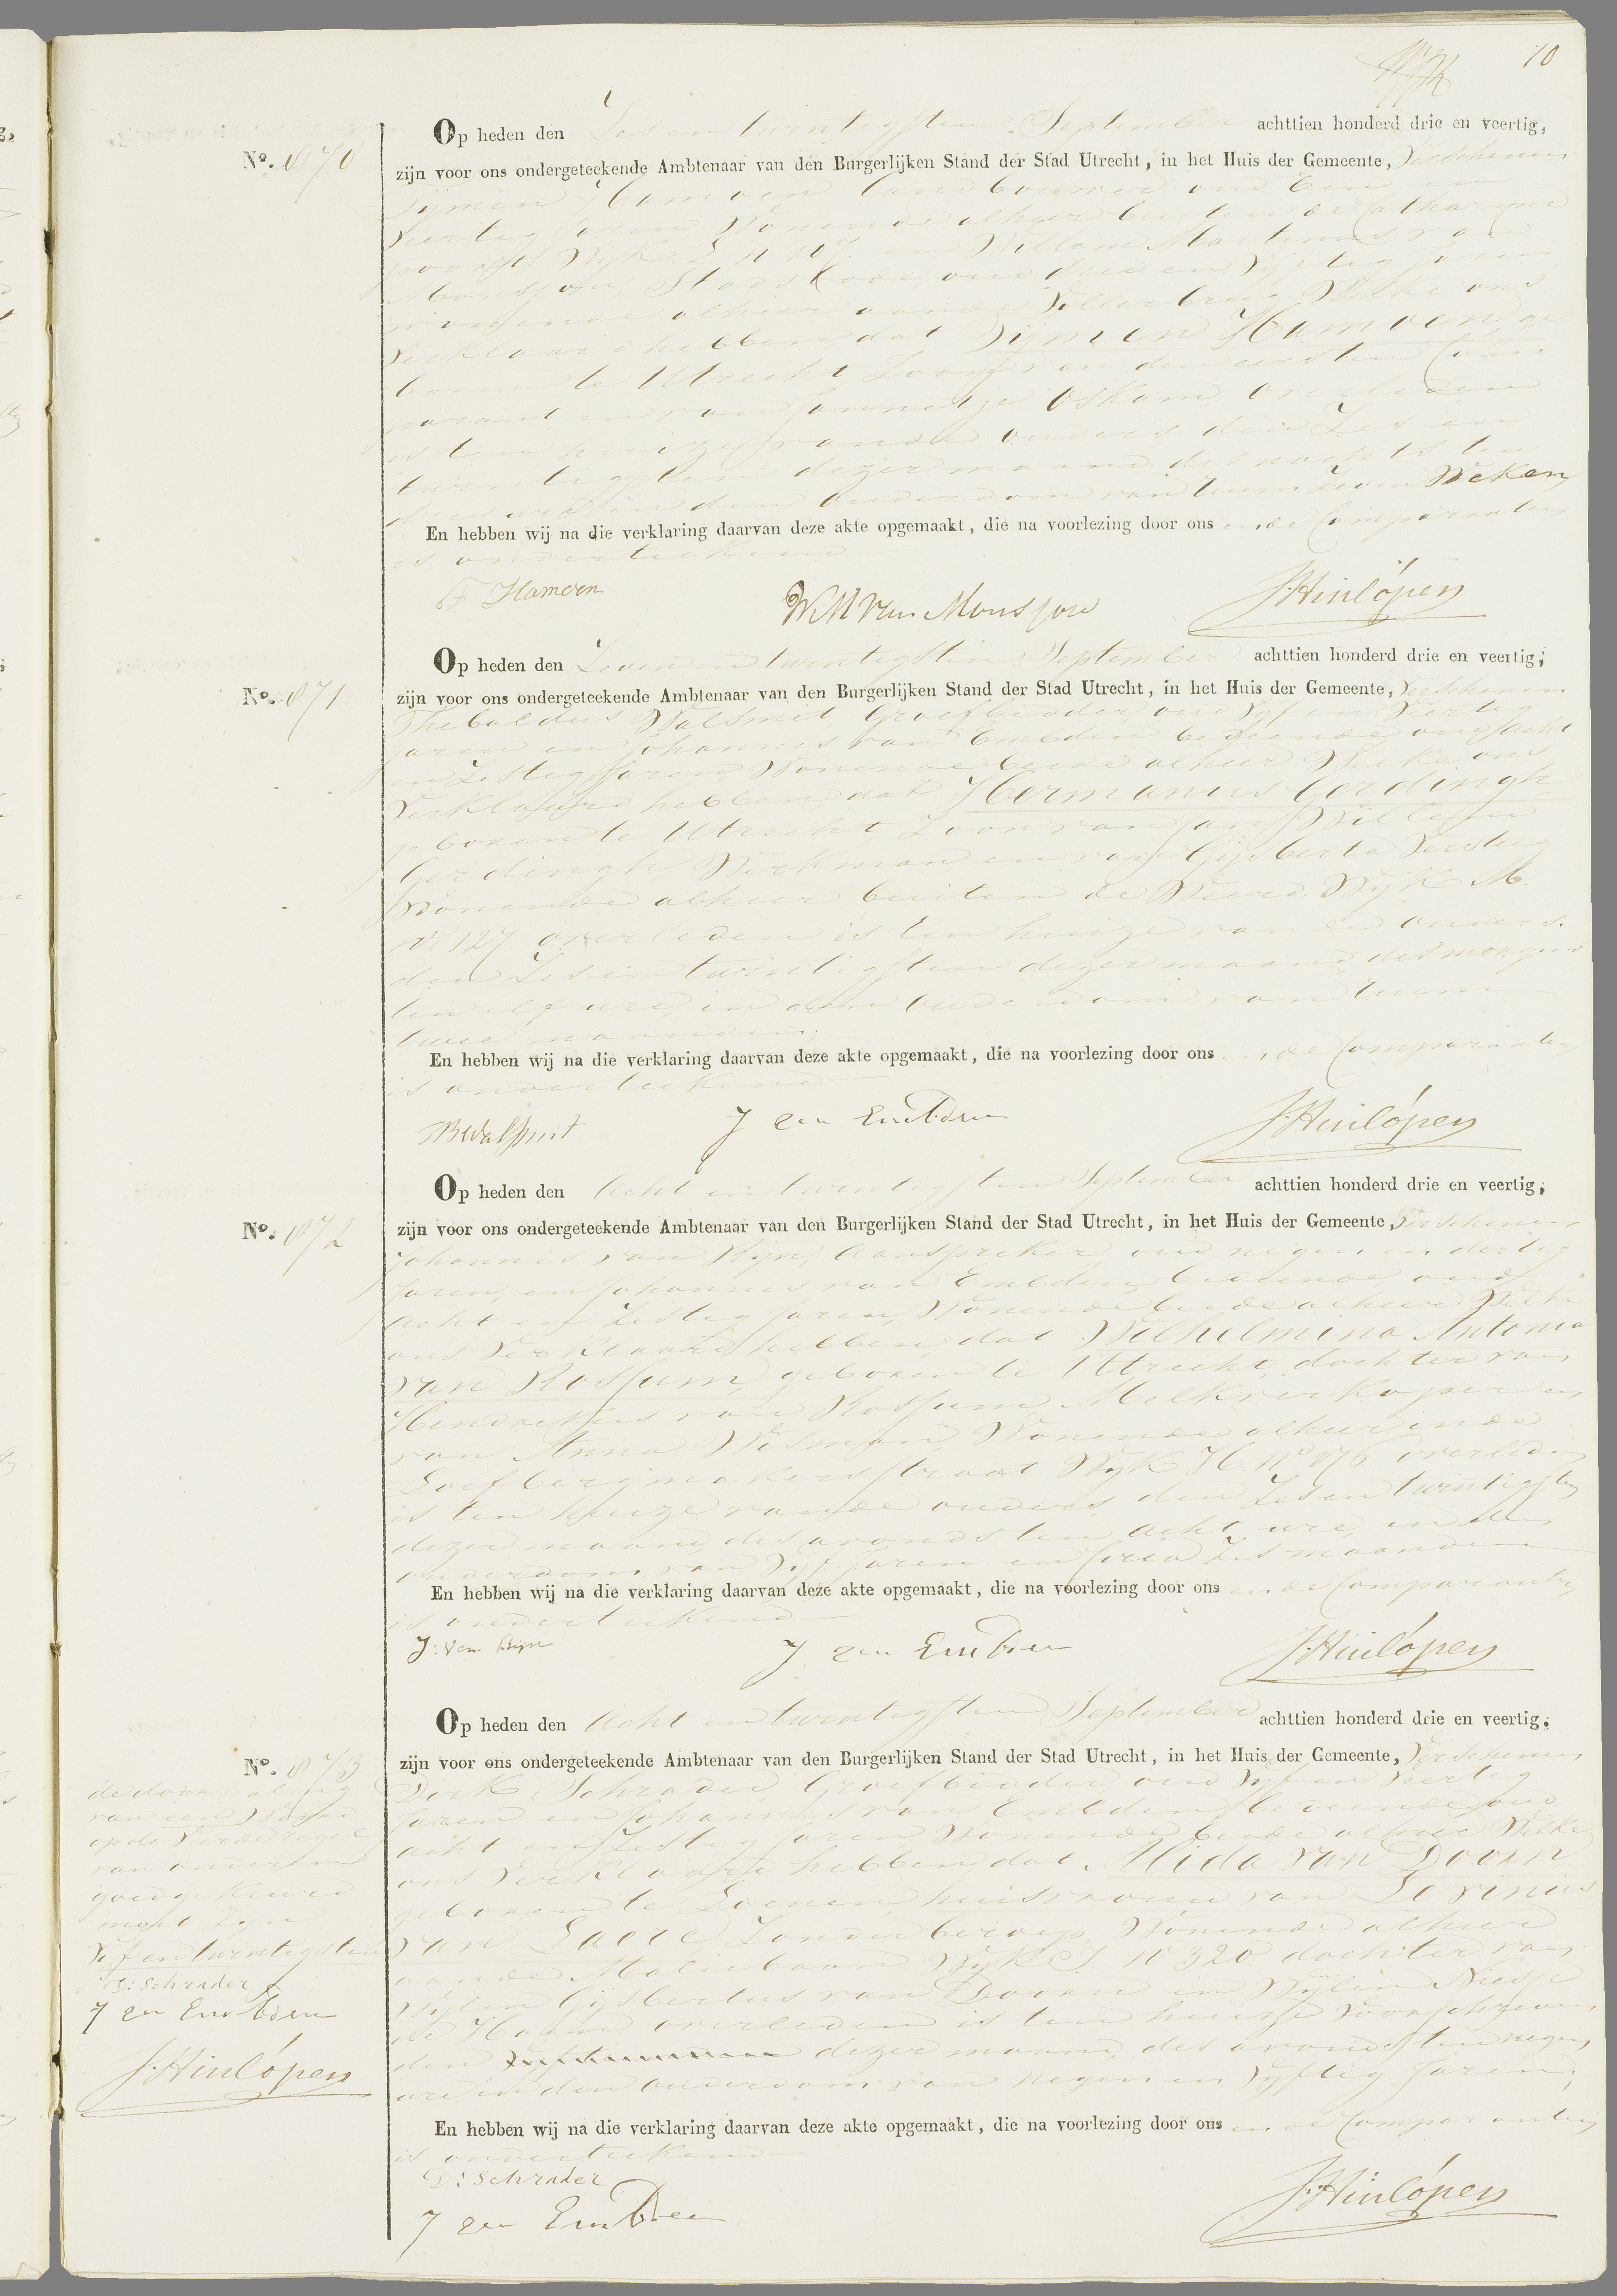 10
Op heden den Zesentwintigsten September achttien honderd drie en veertig,
No. 870
zijn voor ons ondergeteekende Ambtenaar van den Burgerlijken Stand der Stad Utrecht, in het Huis der Gemeente, Verschenen
Tijmen Hamoen landbouwer oud een en
veertig Jaren Wonende alhier buiten de Catharijne
poort Wijk en Willem Martinus van
Monsjou Stadsbode oud drie en Vijftig Jaren
wonende alhier aan de Vollersbrug Welke ons
Verklaard hebben dat Tijmen Hamoen ge
boren te Utrecht Zoon van den eersten Com
parant en van Jannetje Oskam overleden
is ten huize van de ouders den Zes en
twintigsten dezer maand des nachts ten
drie ure in den ouderdom van ruim Zeven Weken
En hebben wij na die verklaring daarvan deze akte opgemaakt, die na voorlezing door ons en de Comparanten
is onderteekend
T Hamoen
WM van Monsjou
J. Hinlópen
Op heden den Zeven en twintigsten September achttien honderd drie en veertig;
No. 871
zijn voor ons ondergeteekende Ambtenaar van den Burgerlijken Stand der Stad Utrecht, in het Huis der Gemeente, Verschenen
Thebaldus Walsmit Groefbidder oud Vijf en Veertig
Jaren en Johannes van Embden bediende oud acht
en Zestig Jaren Wonende beide alhier Welke ons
Verklaard hebben dat Hermanus Gerdingh
geboren te Utrecht Zoon van Jan Willem
Gerdingh Werkman en van Gijsberta Versteeg
Wonende alhier buiten de Weerd Wijk M
No 127 overleden is ten huize van de ouders
den Zesentwintigsten dezer maand des morgens
ten elf ure, in den ouderdom van ruim
twee maanden
En hebben wij na die verklaring daarvan deze akte opgemaakt, die na voorlezing door ons en de Comparanten
is onderteekend
J van Embden
J. Hinlópen
Op heden den Acht en twintigsten September achttien honderd drie en veertig;
No. 872
zijn voor ons ondergeteekende Ambtenaar van den Burgerlijken Stand der Stad Utrecht, in het Huis der Gemeente, Verschenen
Johannes van Rijn, Aanspreker, oud negen en dertig
Jaren, en Johannes van Embden, bediende, oud
acht en Zestig Jaren, Wonende beide alhier Welke
ons Verklaard hebben, dat Wilhelmina Antonia
van Rossum, geboren te Utrecht, dochter van
Hendrikus van Rossum Melkverkoper en
van Anna Wisman, Wonende alhier in de
Loefbergmakersstraat Wijk H no 876 overleden
is ten huize van de ouders, den Zesentwintigsten
dezer maand des avonds ten acht ure, in den
ouderdom van Vijf Jaren en circa Zes maanden
En hebben wij na die verklaring daarvan deze akte opgemaakt, die na voorlezing door ons en de Comparanten
is onderteekend
J: van Rijn
J van Embden
J. Hinlópen
Op heden den Acht en twintigsten September achttien honderd drie en veertig;
No. 873
zijn voor ons ondergeteekende Ambtenaar van den Burgerlijken Stand der Stad Utrecht, in het Huis der Gemeente, Verschenen
Dirk Schrader, Groefbidder oud Vijf en Veertig
Jaren en Johannes van Embden bediende oud
acht en Zestig Jaren Wonende beide alhier Welke
ons Verklaard hebben, dat Mida van Doorn
geboren te Loenen huisvrouw van Levinus
van Laare Zonder beroep, Wonende alhier
aan de Maliebaan Wijk I no 320 dochter van
Wijlen Gijsbertus van Doorn en Wijlen Niesje
de Haan overleden is ten huize Voorschreven
den dezer maand, des avonds ten negen
ure in den ouderdom van negen en Vijftig Jaren,
En hebben wij na die verklaring daarvan deze akte opgemaakt, die na voorlezing door ons en de Comparanten
is onderteekend
D: Schrader
J van Embden
J. Hinlópen
de doorhaling
van een Woord
op de Vierde regel
van onderen
goedgekeurd
moet Zijn
Vijfentwintigsten
D: Schrader
J van Embden
J. Hinlópen